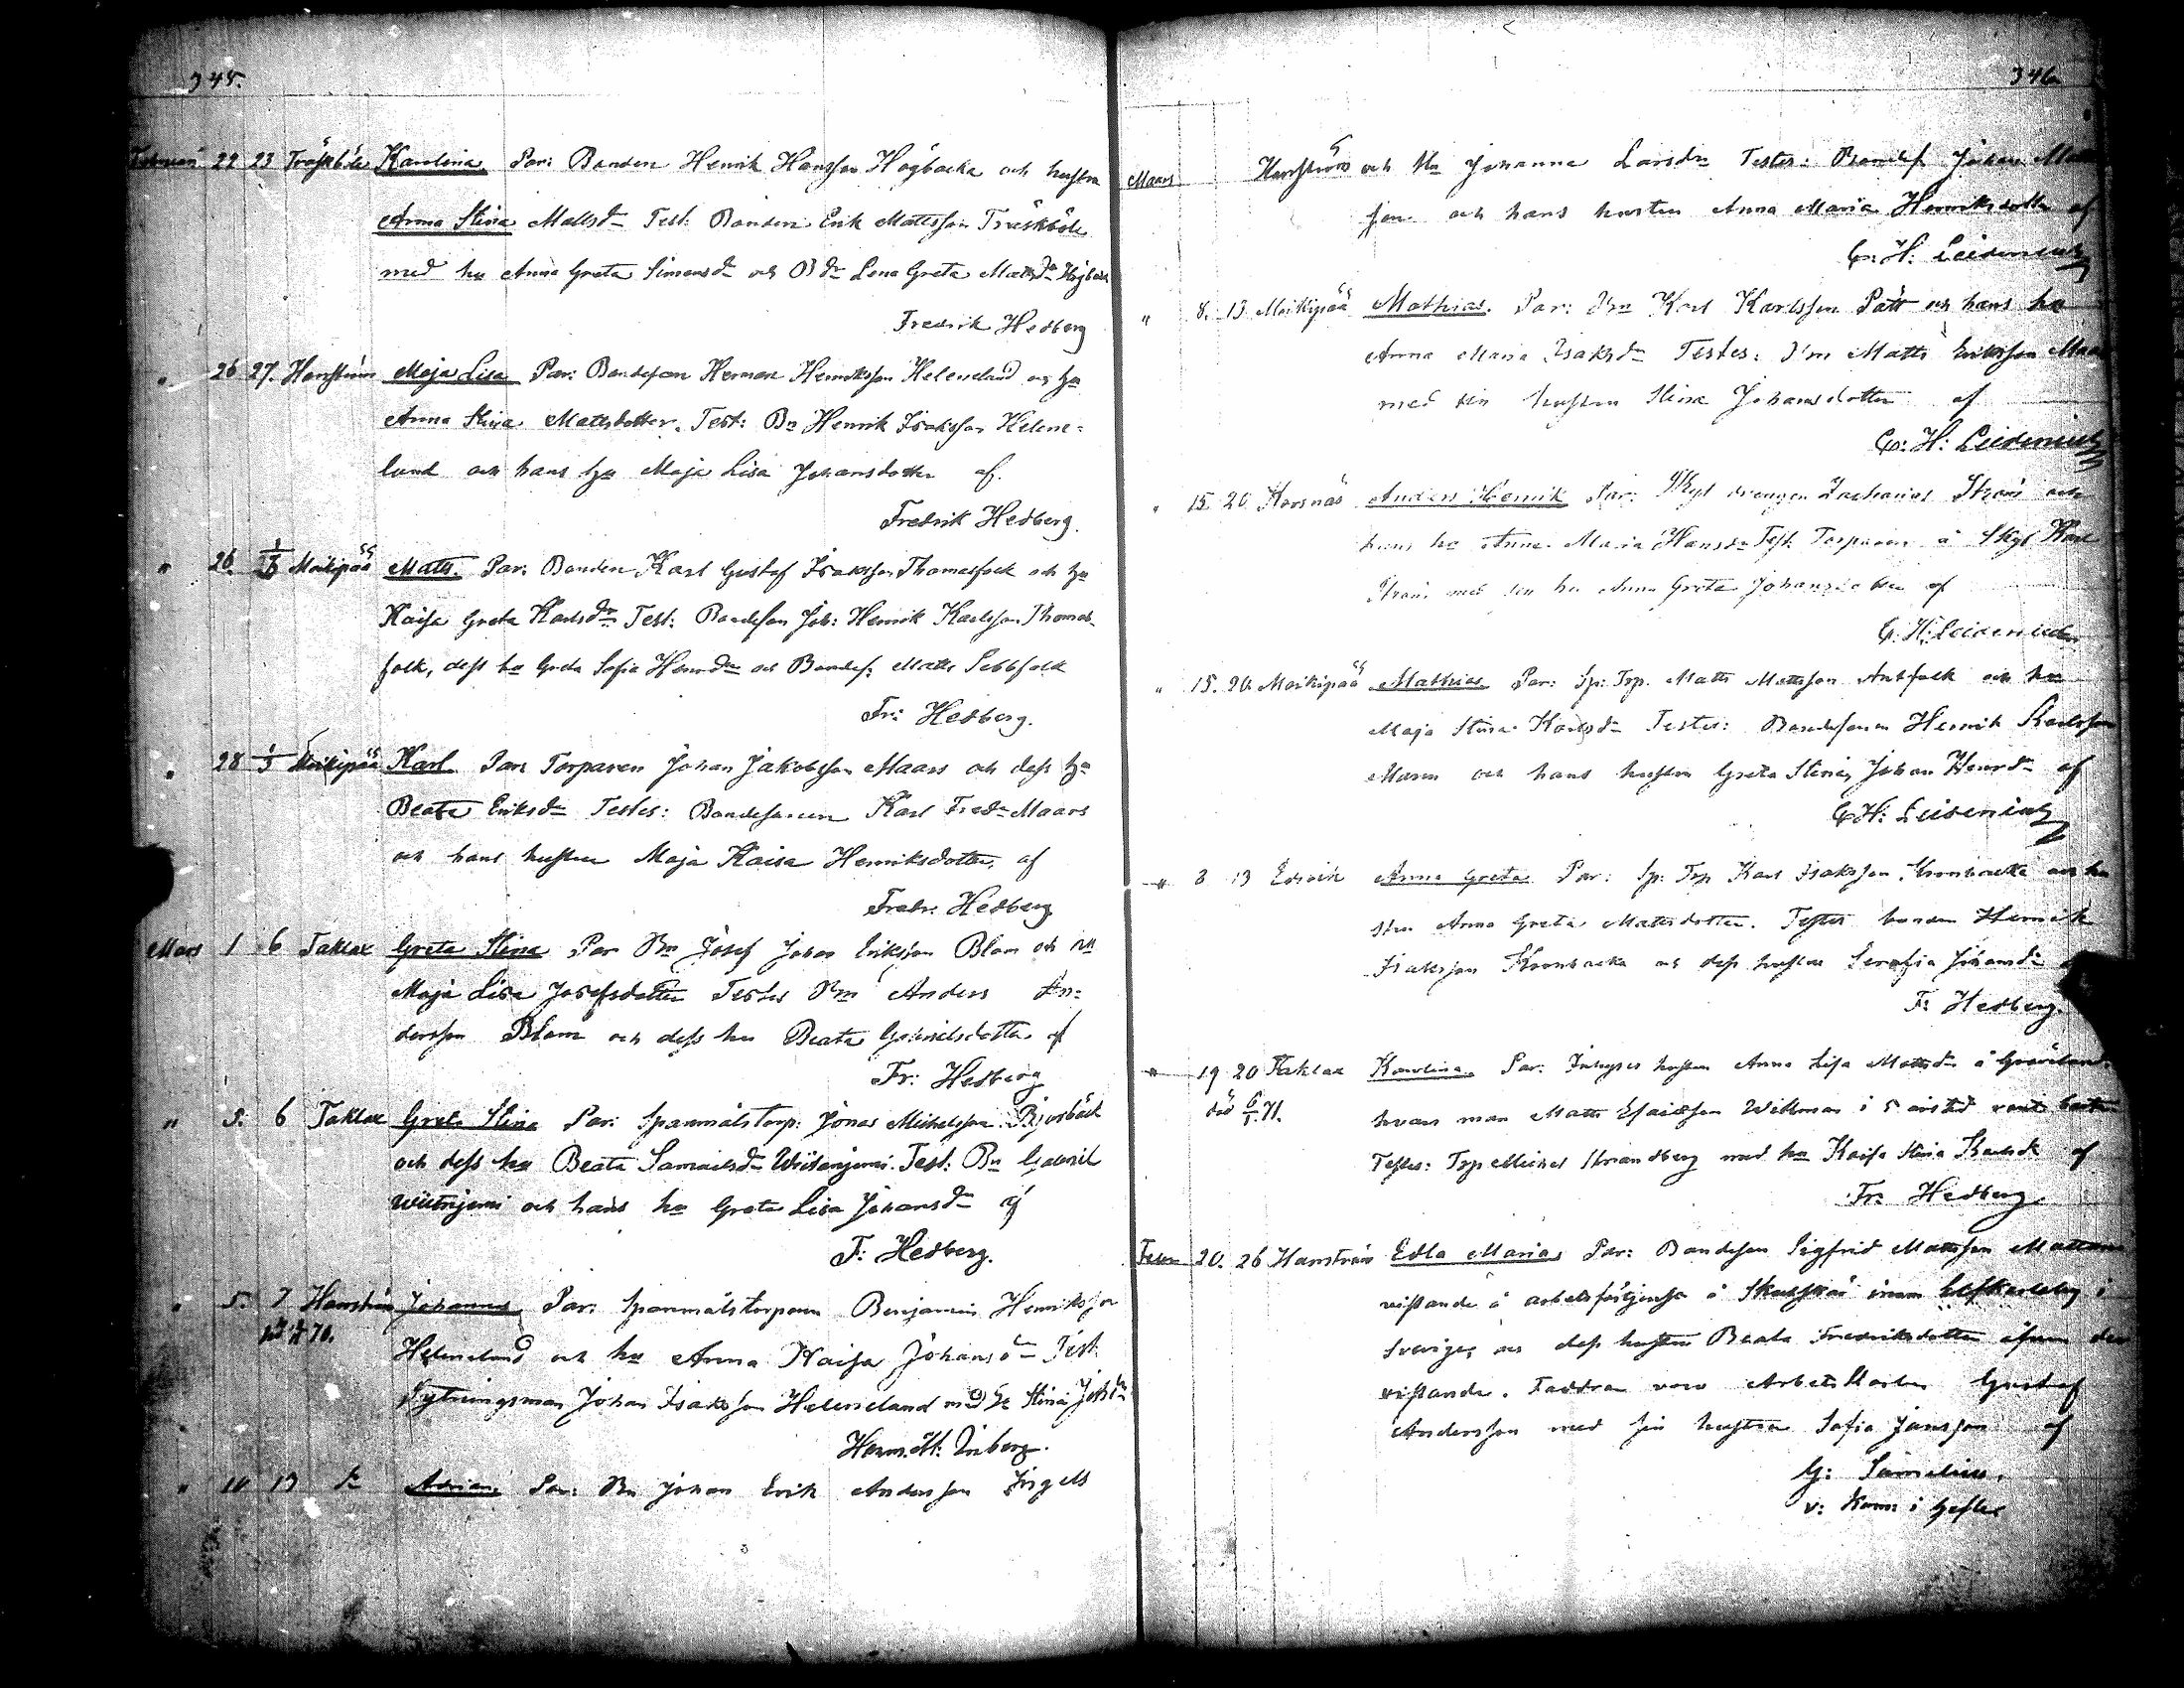 345.
Februari 22 23 Träskböle Karolina. Par: Bonden Henrik Hansson Högbacka och hustru
Anna Stina Mattsdr Test: Bonden Erik Mattsson Träskböle
med hu Anna Greta Simonsdr och Bdr Lena Greta Mattsdr Högback
Fredrik Hedberg
" 26 27. Harrström Maja Lisa Par: Bondeson Herman Henriksson Helenelund och hu
Anna Stina Mattsdotter. Test: Bn Henrik Isaksson Helene-
lund och hans hu Maja Lisa Johansdotter af.
Fredrik Hedberg.
" 26. Moikipää Matts. Par: Bonden Karl Gustaf Isaksson Thomasfolk och hu
Kaisa Greta Karlsdr Test: Bondeson Joh: Henrik Karlsson Thomas-
folk, dess hu Greta Sofia Henrdr och Bondes: Matts Sebbfolk
Fr: Hedberg.
" 28 1/3 Moikipää Karl Par: Torparen Johan Jakobsson Maars och dess hu
Beata Eriksdr Testes: Bondesonen Karl Fredr Maars
och hans hustru Maja Kaisa Henriksdotter, af
Fredr: Hedberg
Mars 1 6 Taklax Greta Stina Par Bn Josef Johan Eriksson Blom och hu
Maja Lisa Josefsdotter Testes Bn Anders An-
dersson Blom och dess hu Beata Gabrielsdotter af
Fr: Hedberg
" 5. 6 Taklax Greta Stina Par: Spanmålstorp: Jonas Michelsson Bjorbäck
och dess hu Beata Samuelsdr Wiitanjemi. Test: Bn Gabriel
Wiitanjemi och hans hu Greta Lisa Johansdr af
F: Hedberg.
" 5. 7 Harrström Johannes Par: Spanmålstorparen Benjamin Henriksson
Helenelund och hu Anna Kaisa Johansdr Test
Sytningsman Johan Isaksson Helenelund med hu Stina
" 10 13 Par: Bn Johan Erik Andersson Ingels
346
Mars Harrström och hu Johanna Larsdr Testes: Bondes Johan Matts
son och hans hustru Anna Maria Henriksdotter af
C: H: Leidenius
" 8. 13 Moikipää Mathias. Par: Karl Karlsson Pått och hans hu
Anna Maria Isaksdr Testes: Matts Eriksson Maars
med sin hustru Stina Johansdotter af
C: H: Leidenius
" 15. 20. Korsnäs Anders Henrik Par: drengen Zacharias Ström och
hans hu Anna Maria Hansdr Test: Torparen å Karl
Ström med sin hu Anna Greta Johansdotter af
C. H: Leidenius
" 15. 20. Moikipää Mathias Par: Sp: Trp. Matts Mattsson Antfolk och hu
Maja Stina Karlsdr Testes: Bondesonen Henrik Karlsson
Maren och hans hustru Greta Stina Johan Henrdr af
C H: Leidenius
" 8 13 Edsvik Anna Greta Par: Sp: Trp Karl Isaksson Kronbacka och hu
stru Anna Greta Mattsdotter. Testes bonden Henrik
Isaksson Kronbacka och dess hustru Serafia Johansdr
F: Hedberg.
" 19 20 Taklax Karolina. Par: Inhyses hustru Anna Lisa Mattsdr å
död 6/1 71. hvars man Matts Esaiasson Willman i 5 års tid varit borta
Testes: Trp Michel Strandberg med hu Kaisa Stina Karlsdr af
Fr: Hedberg.
20. 26 Harrström Edla Maria Par: Bondeson Sigfrid Mattsson
vistande å arbetsförtjenst å Skutskär inom Elfkarleby i
Sverige, och dess hustru Beata Fredriksdotter äfven der
vistande. Faddrar voro Arbetskarlen Gustaf
Andersson med sin hustru Sofia Jansson af
v: Kom: i Gefle